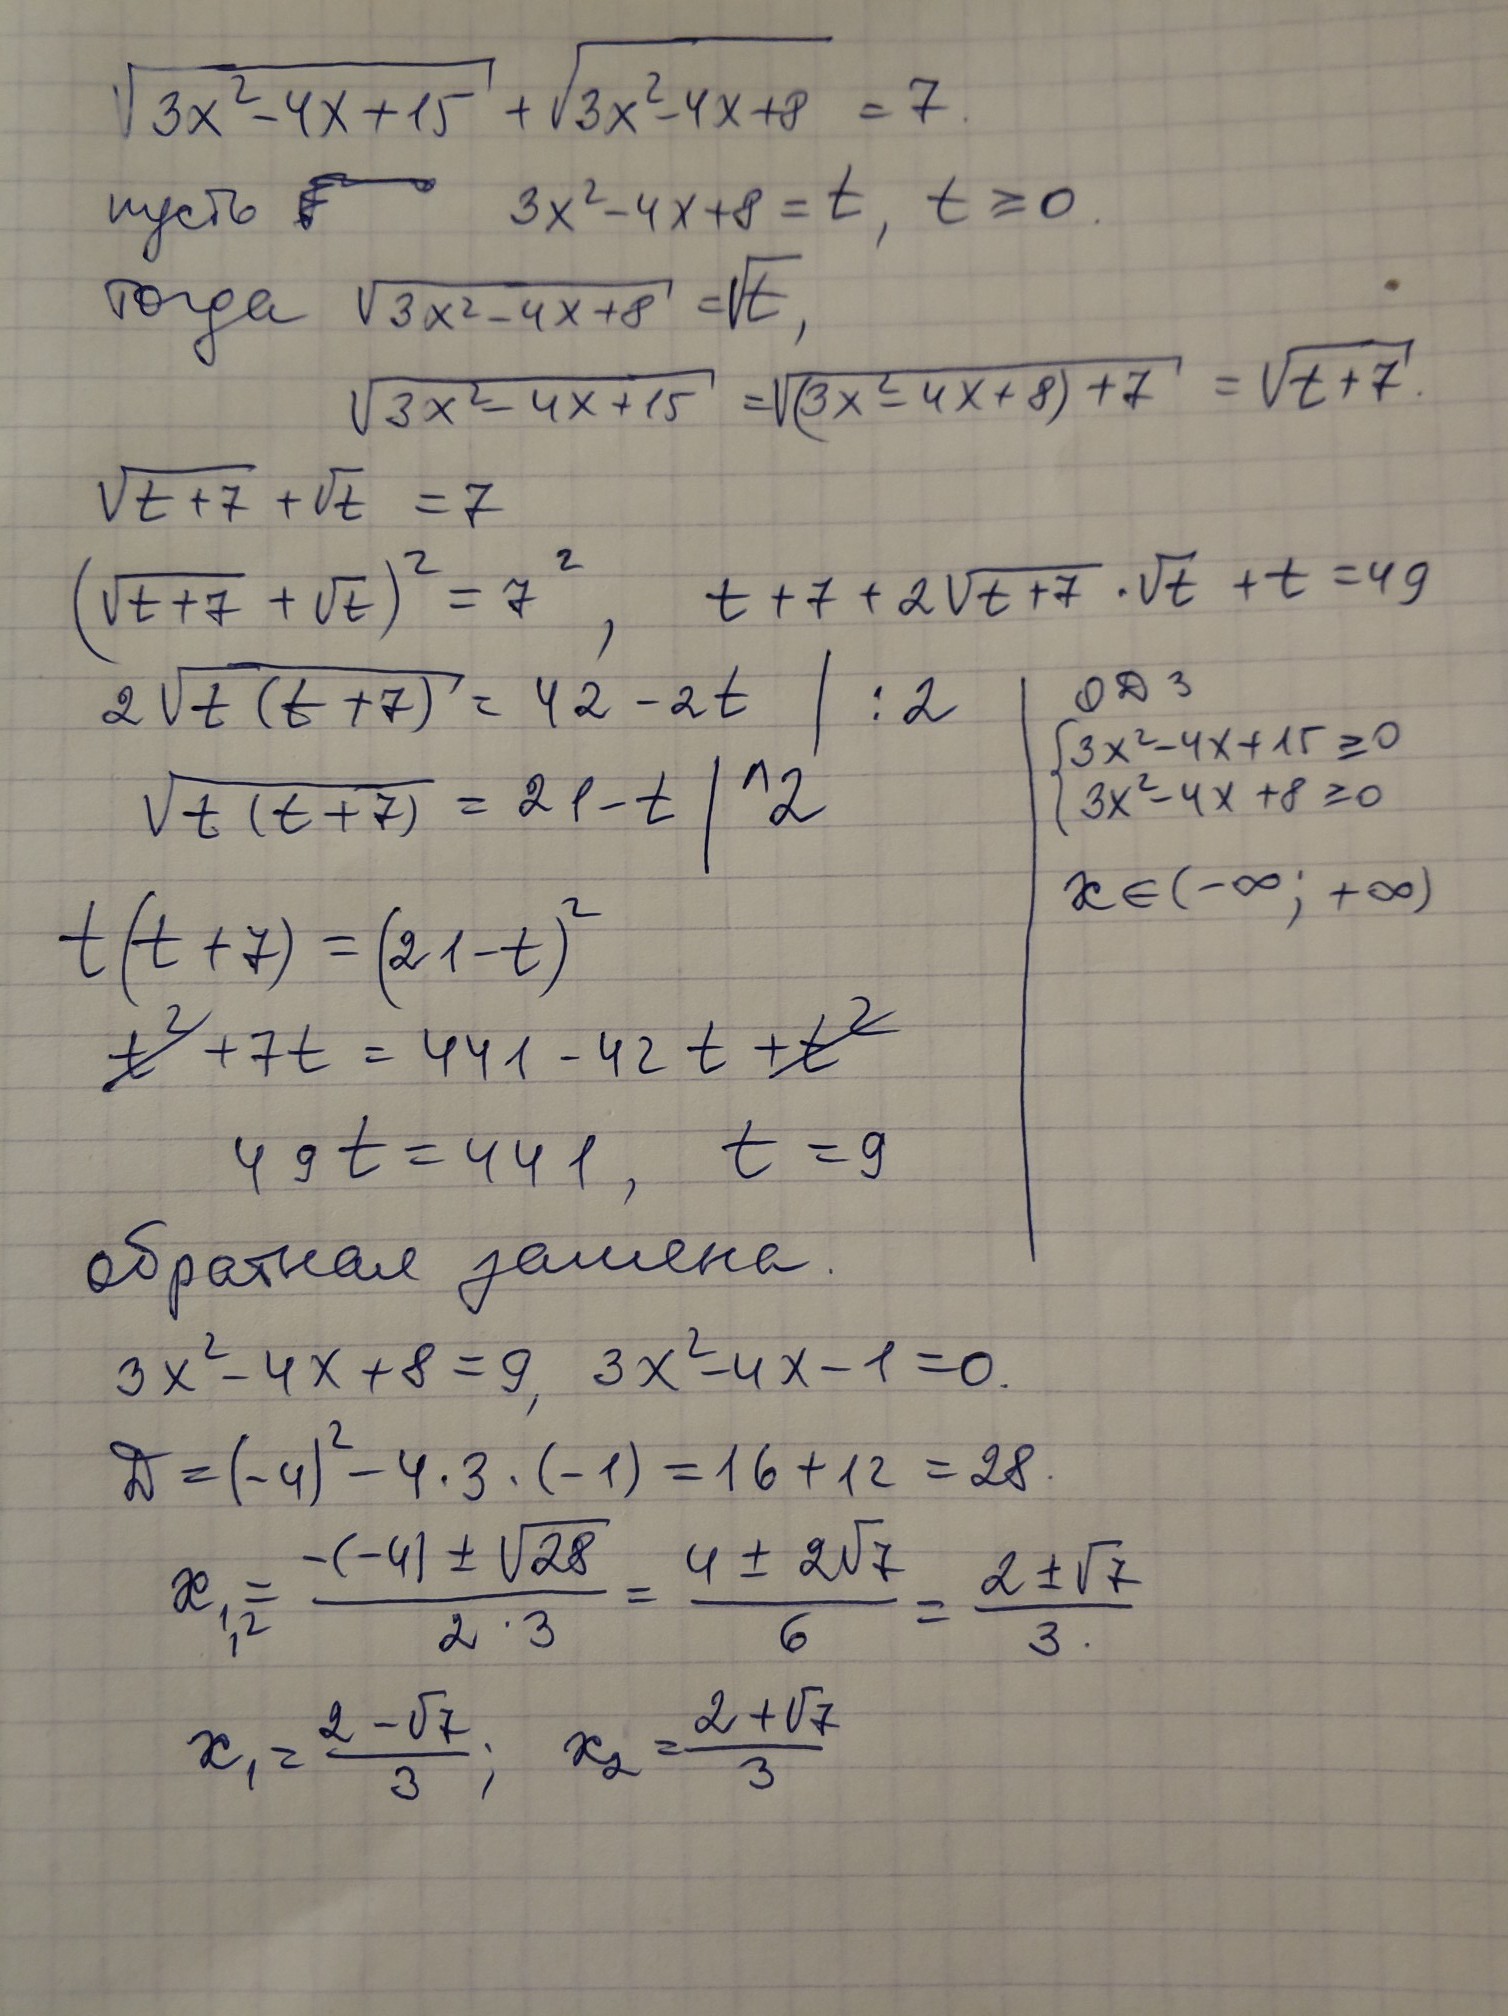 √(3x²-4x+15) + √(3x²-4x+8) = 7.
пусть 3x²-4x+8 = t, t ≥ 0.
тогда √(3x²-4x+8) = √t,
√(3x²-4x+15) = √((3x²-4x+8)+7) = √(t+7).
√(t+7) + √t = 7
(√(t+7) + √t)² = 7², t+7+2√(t+7)·√t + t = 49
2√(t(t+7)) = 42-2t | :2
√(t(t+7)) = 21-t | ^2
t(t+7) = (21-t)²
t² + 7t = 441 - 42t + t²
49t = 441, t = 9
ОДЗ
{3x²-4x+15 ≥ 0
{3x²-4x+8 ≥ 0
x ∈ (-∞; +∞)
обратная замена.
3x²-4x+8 = 9, 3x²-4x-1 = 0.
D = (-4)² - 4·3·(-1) = 16+12 = 28.
x₁,₂ = (-(-4) ± √28)/(2·3) = (4 ± 2√7)/6 = (2 ± √7)/3.
x₁ = (2-√7)/3; x₂ = (2+√7)/3